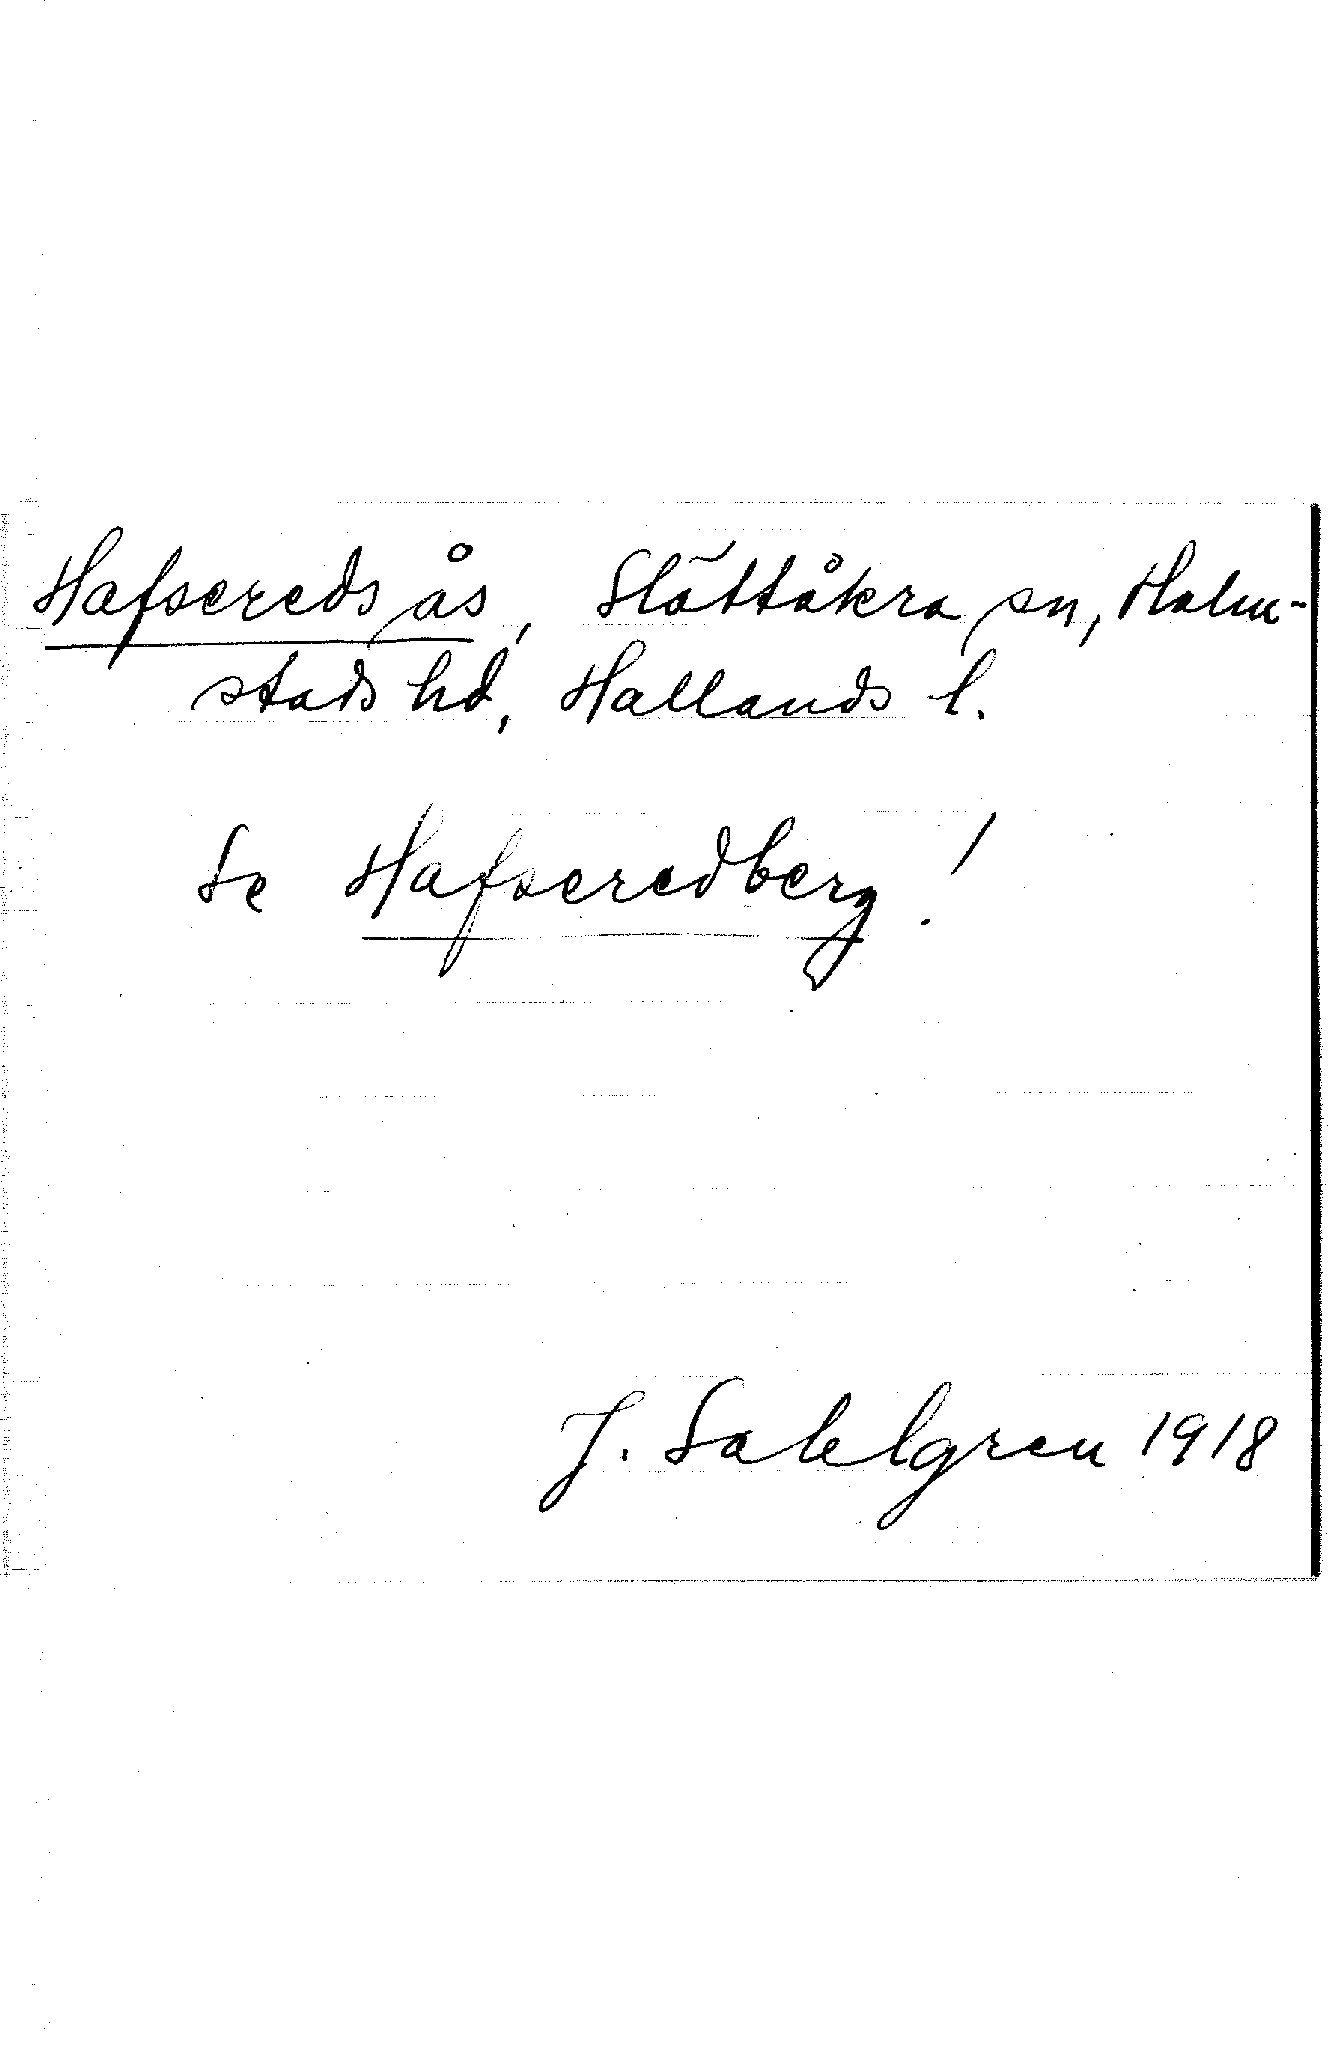 Hafsereds ås, Slättåkra sn, Halm-
stads hd, Hallands l.
Se Hafseredberg!
J. Sahlgren 1918